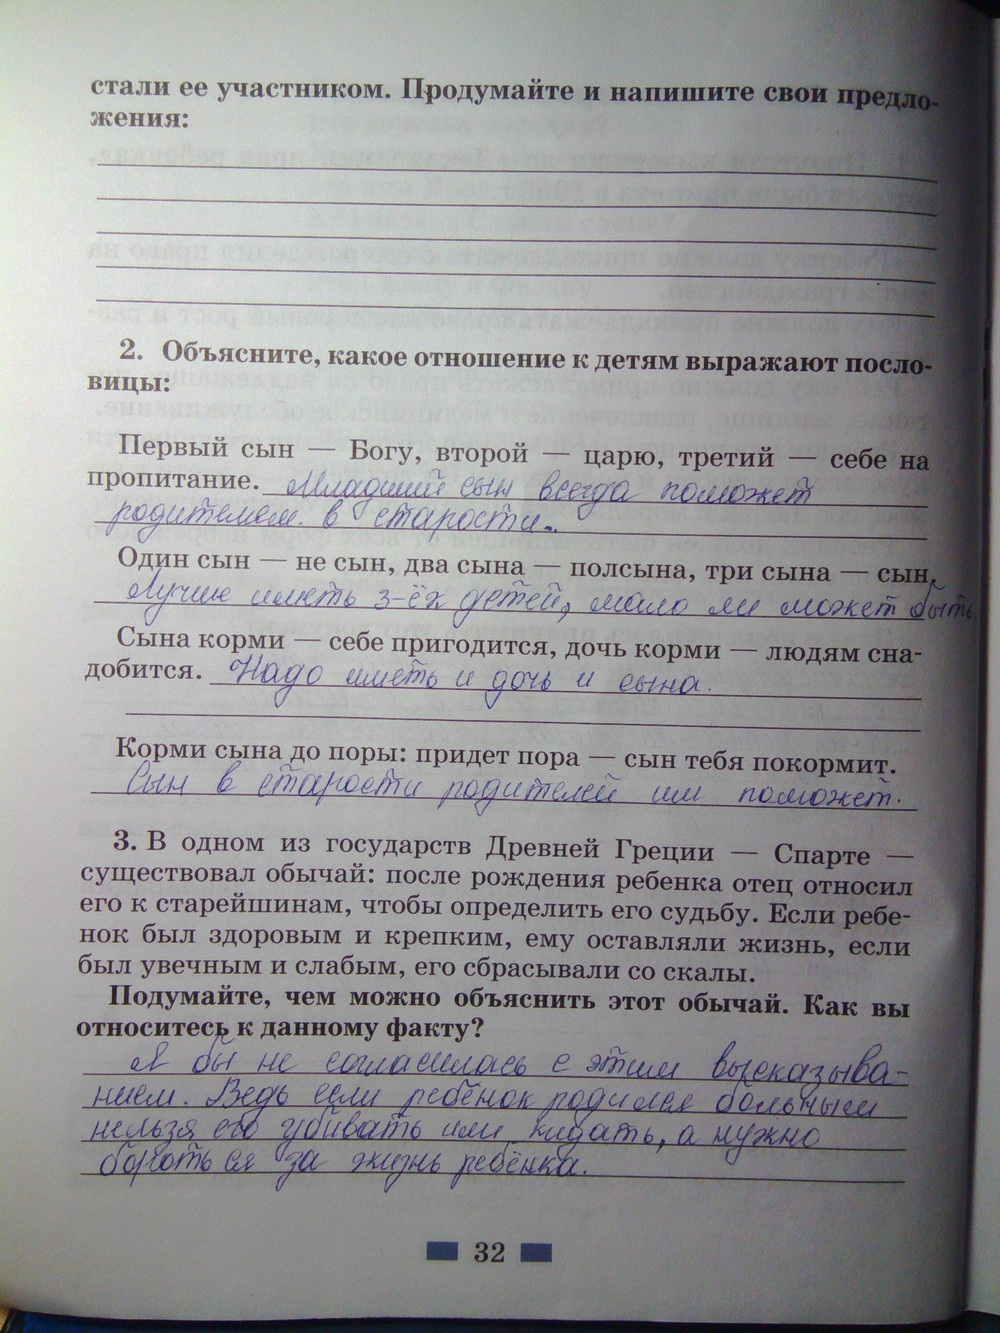 стали ее участником. Продумайте и напишите свои предло-
жения:
2. Объясните, какое отношение к детям выражают посло-
вицы:
Первый сын — Богу, второй — царю, третий — себе на
пропитание. Младший сын всегда поможет
родителем в старости.
Один сын — не сын, два сына — полсына, три сына — сын.
Лучше иметь 3-ёх детей, мало ли может быть
Сына корми — себе пригодится, дочь корми — людям сна-
добится. Надо иметь и дочь и сына.
Корми сына до поры: придет пора — сын тебя покормит.
Сын в старости родителей им поможет.
3. В одном из государств Древней Греции — Спарте —
существовал обычай: после рождения ребенка отец относил
его к старейшинам, чтобы определить его судьбу. Если ребе-
нок был здоровым и крепким, ему оставляли жизнь, если
был увечным и слабым, его сбрасывали со скалы.
Подумайте, чем можно объяснить этот обычай. Как вы
относитесь к данному факту?
Я бы не согласилась с этим высказыва-
нием. Ведь если ребёнок родился больным
нельзя его убивать или кидать, а нужно
бороться за жизнь ребёнка.
32